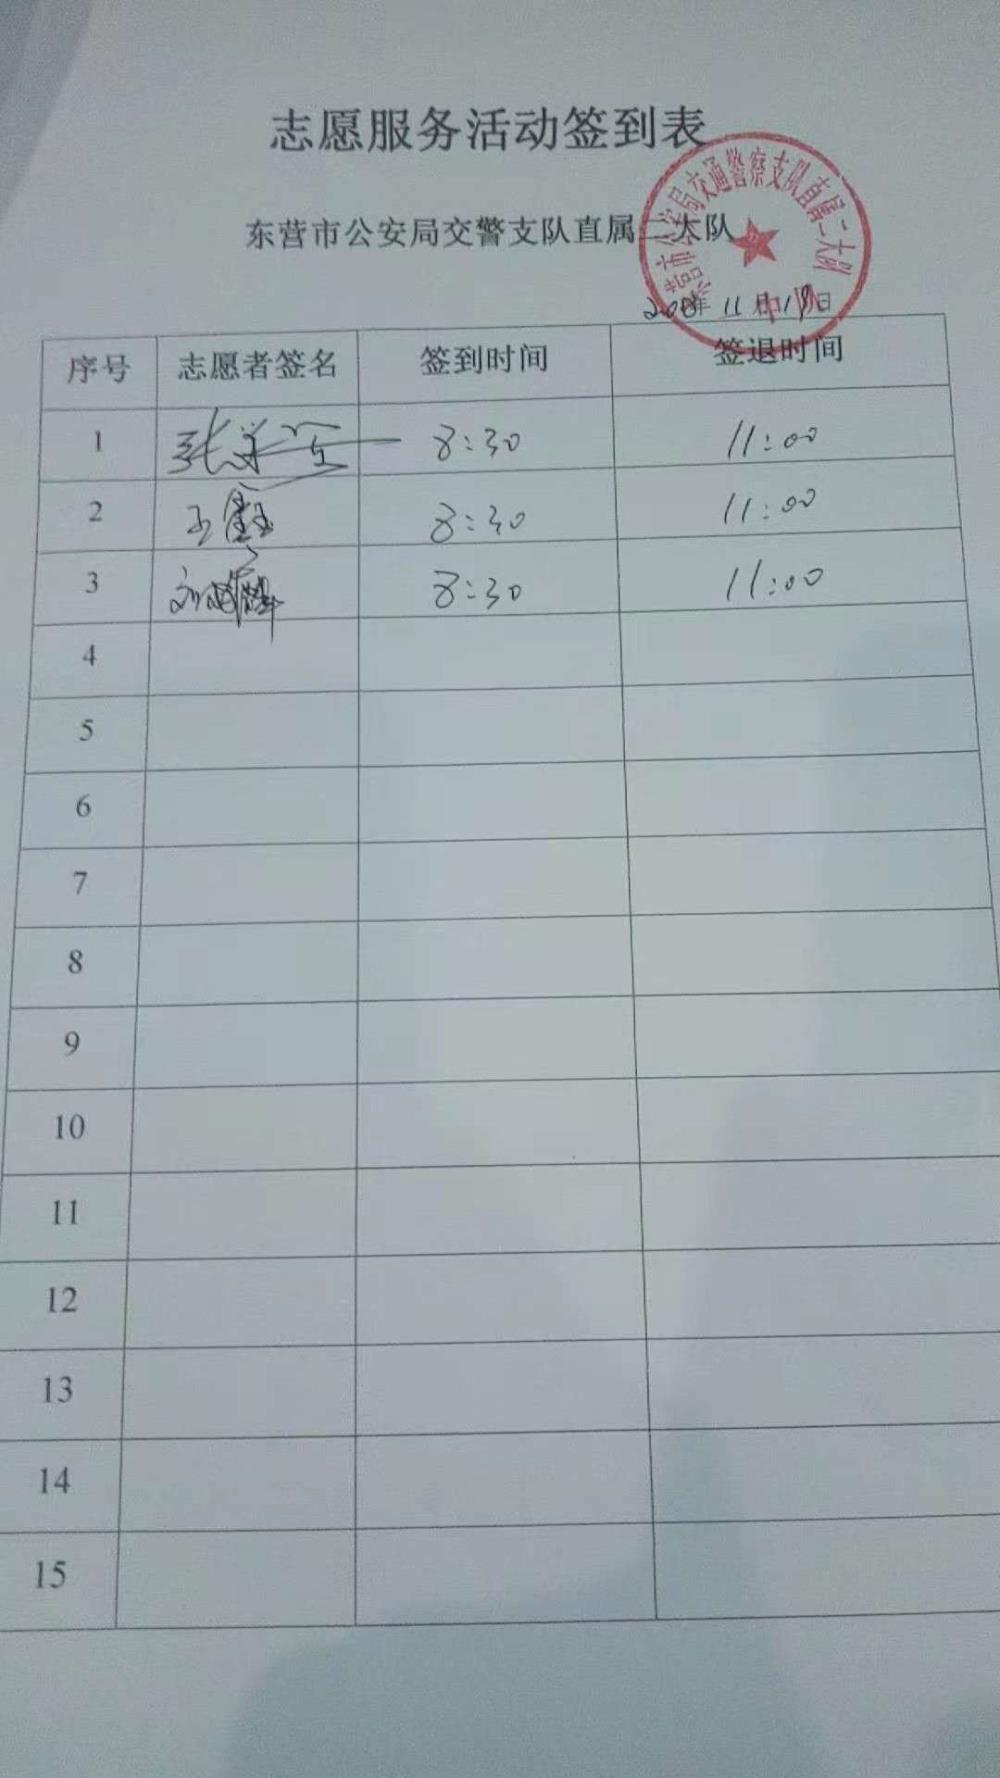 志愿服务活动签到表
东营市公安局交警支队直属二大队
营市公安局交通警察支队直属二大队
年 11 月 19 日
序号 志愿者签名 签到时间 签退时间
1 张 8:30 11:00
2 王 8:30 11:00
3 刘 8:30 11:00
4
5
6
7
8
9
10
11
12
13
14
15